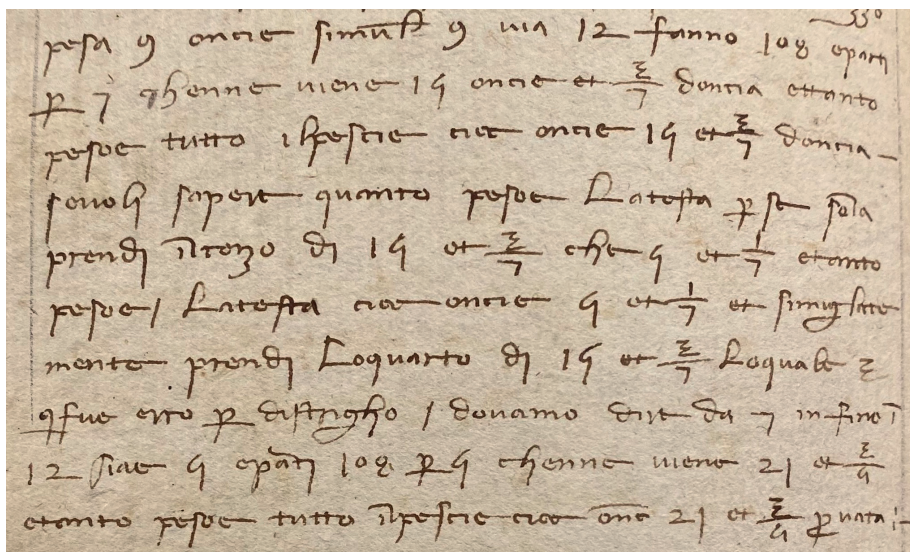 pesa 9 oncie 9 uia 12 fanno 108 eparti
ꝑ 7 chenne uiene 15 oncie et 3/7 doncia ettanto
pesoe tutto ilpescie cioe oncie 15 et 3/7 doncia –
sevoli sapere quanto pesoe Latesta ꝑ se sola
prendi ilterzo di 15 et 3/7 che 5 et 1/7 etanto
pesoe / Latesta cioe oncie 5 et 1/7 et simiglate
mente prendi Loquarto di 15 et 3/7 Loquale 3
erro ꝑ distrigho / dovamo dire da 7 infino ĩ
12 siae 5 epati 108 ꝑ 5 chenne uiene 21 et 3/5
etanto pesoe tutto ilpescie cioe onc̄ 21 et 3/5